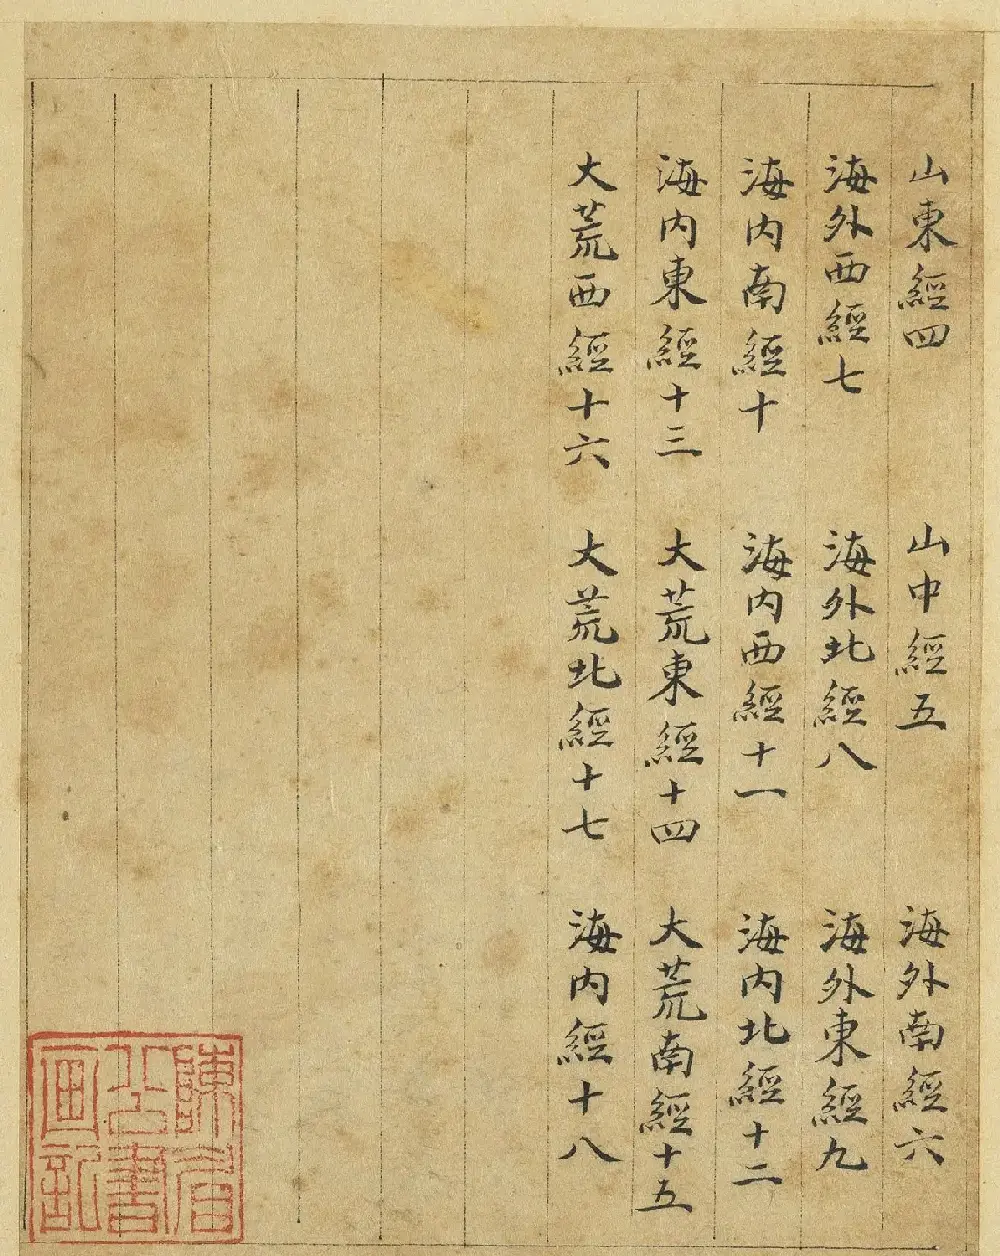 山東經四　山中經五　海外南經六
海外西經七　海外北經八　海外東經九
海內南經十　海內西經十一　海內北經十二
海內東經十三　大荒東經十四　大荒南經十五
大荒西經十六　大荒北經十七　海內經十八
陳眉公書畫記